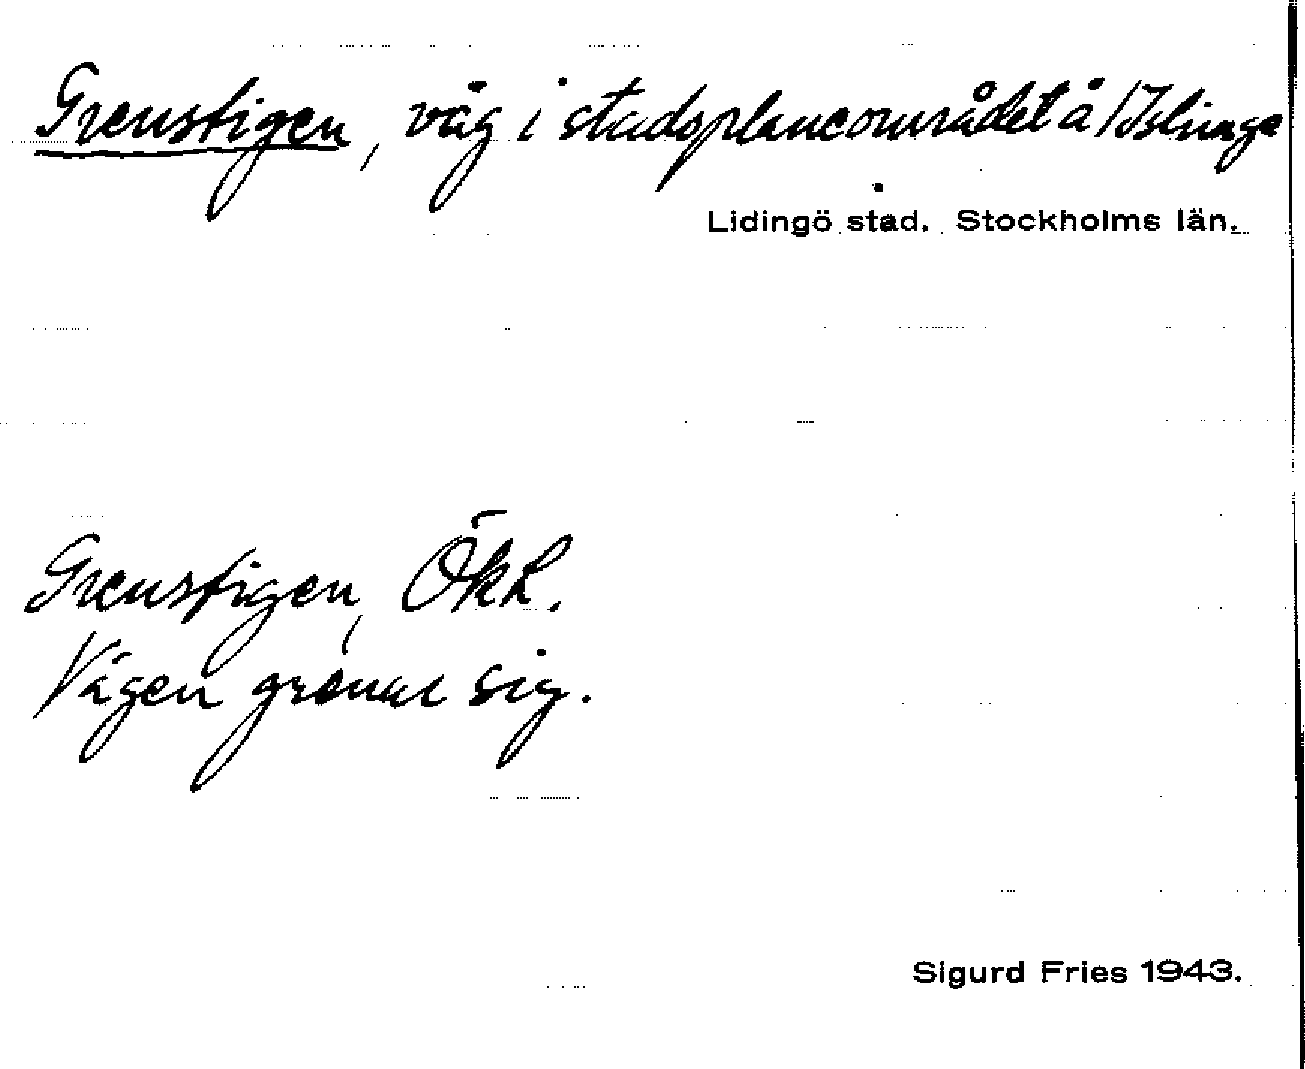 Grenstigen, väg i stadsplaneområdet å /Islinge
Lidingö stad. Stockholms län.
Grenstigen, ÖkR.
Vägen grenar sig.
Sigurd Fries 1943.